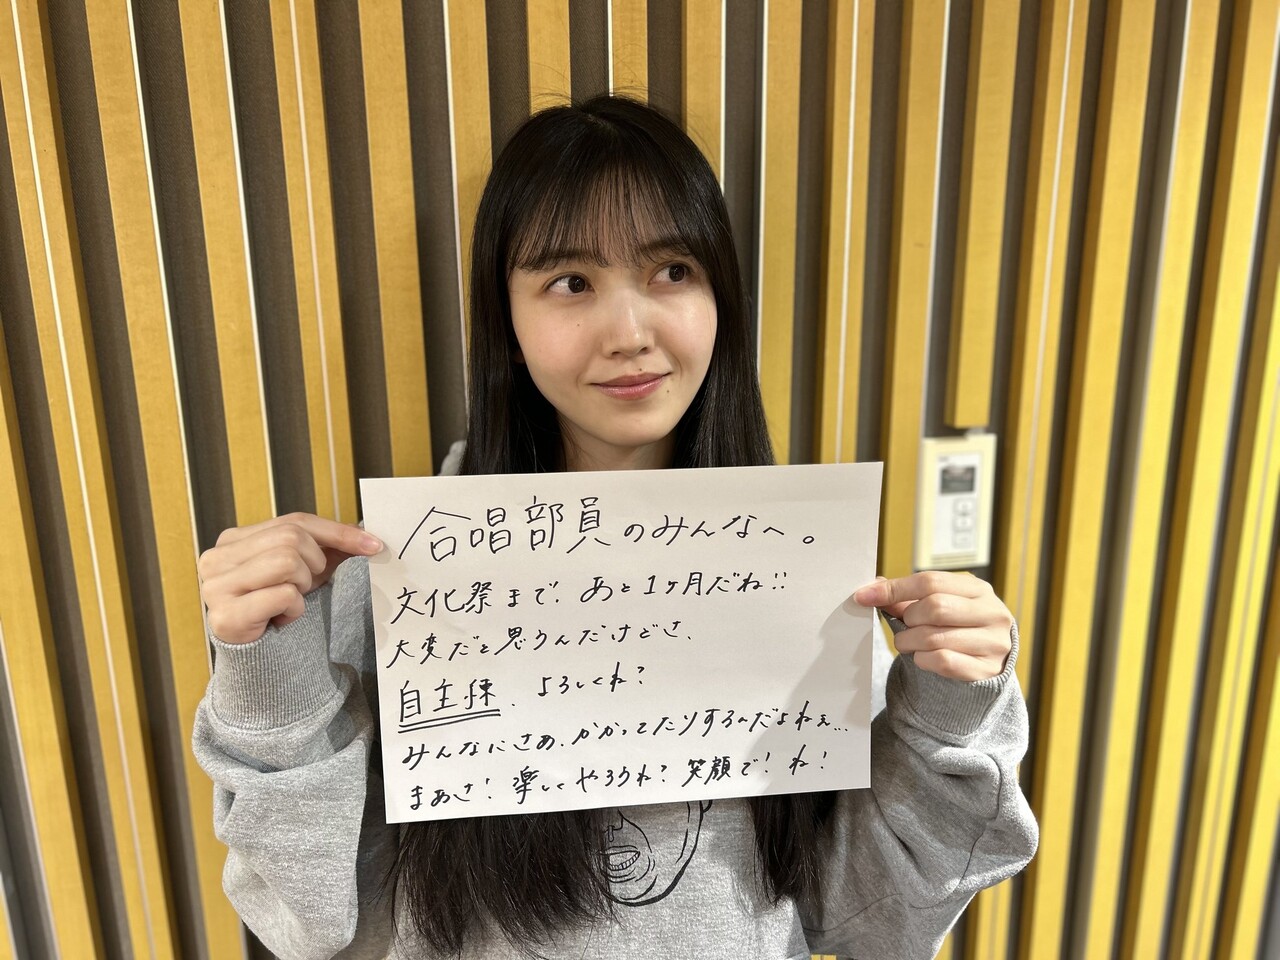 合唱部員のみんなへ。
文化祭まで!あと1ヶ月だね!!
大変だと思うんだけどさ、
自主練、よろしくね?
みんなにさぁ、かかってたりするんだよねぇ…
まあさ!楽しくやろうね?笑顔で!ね!